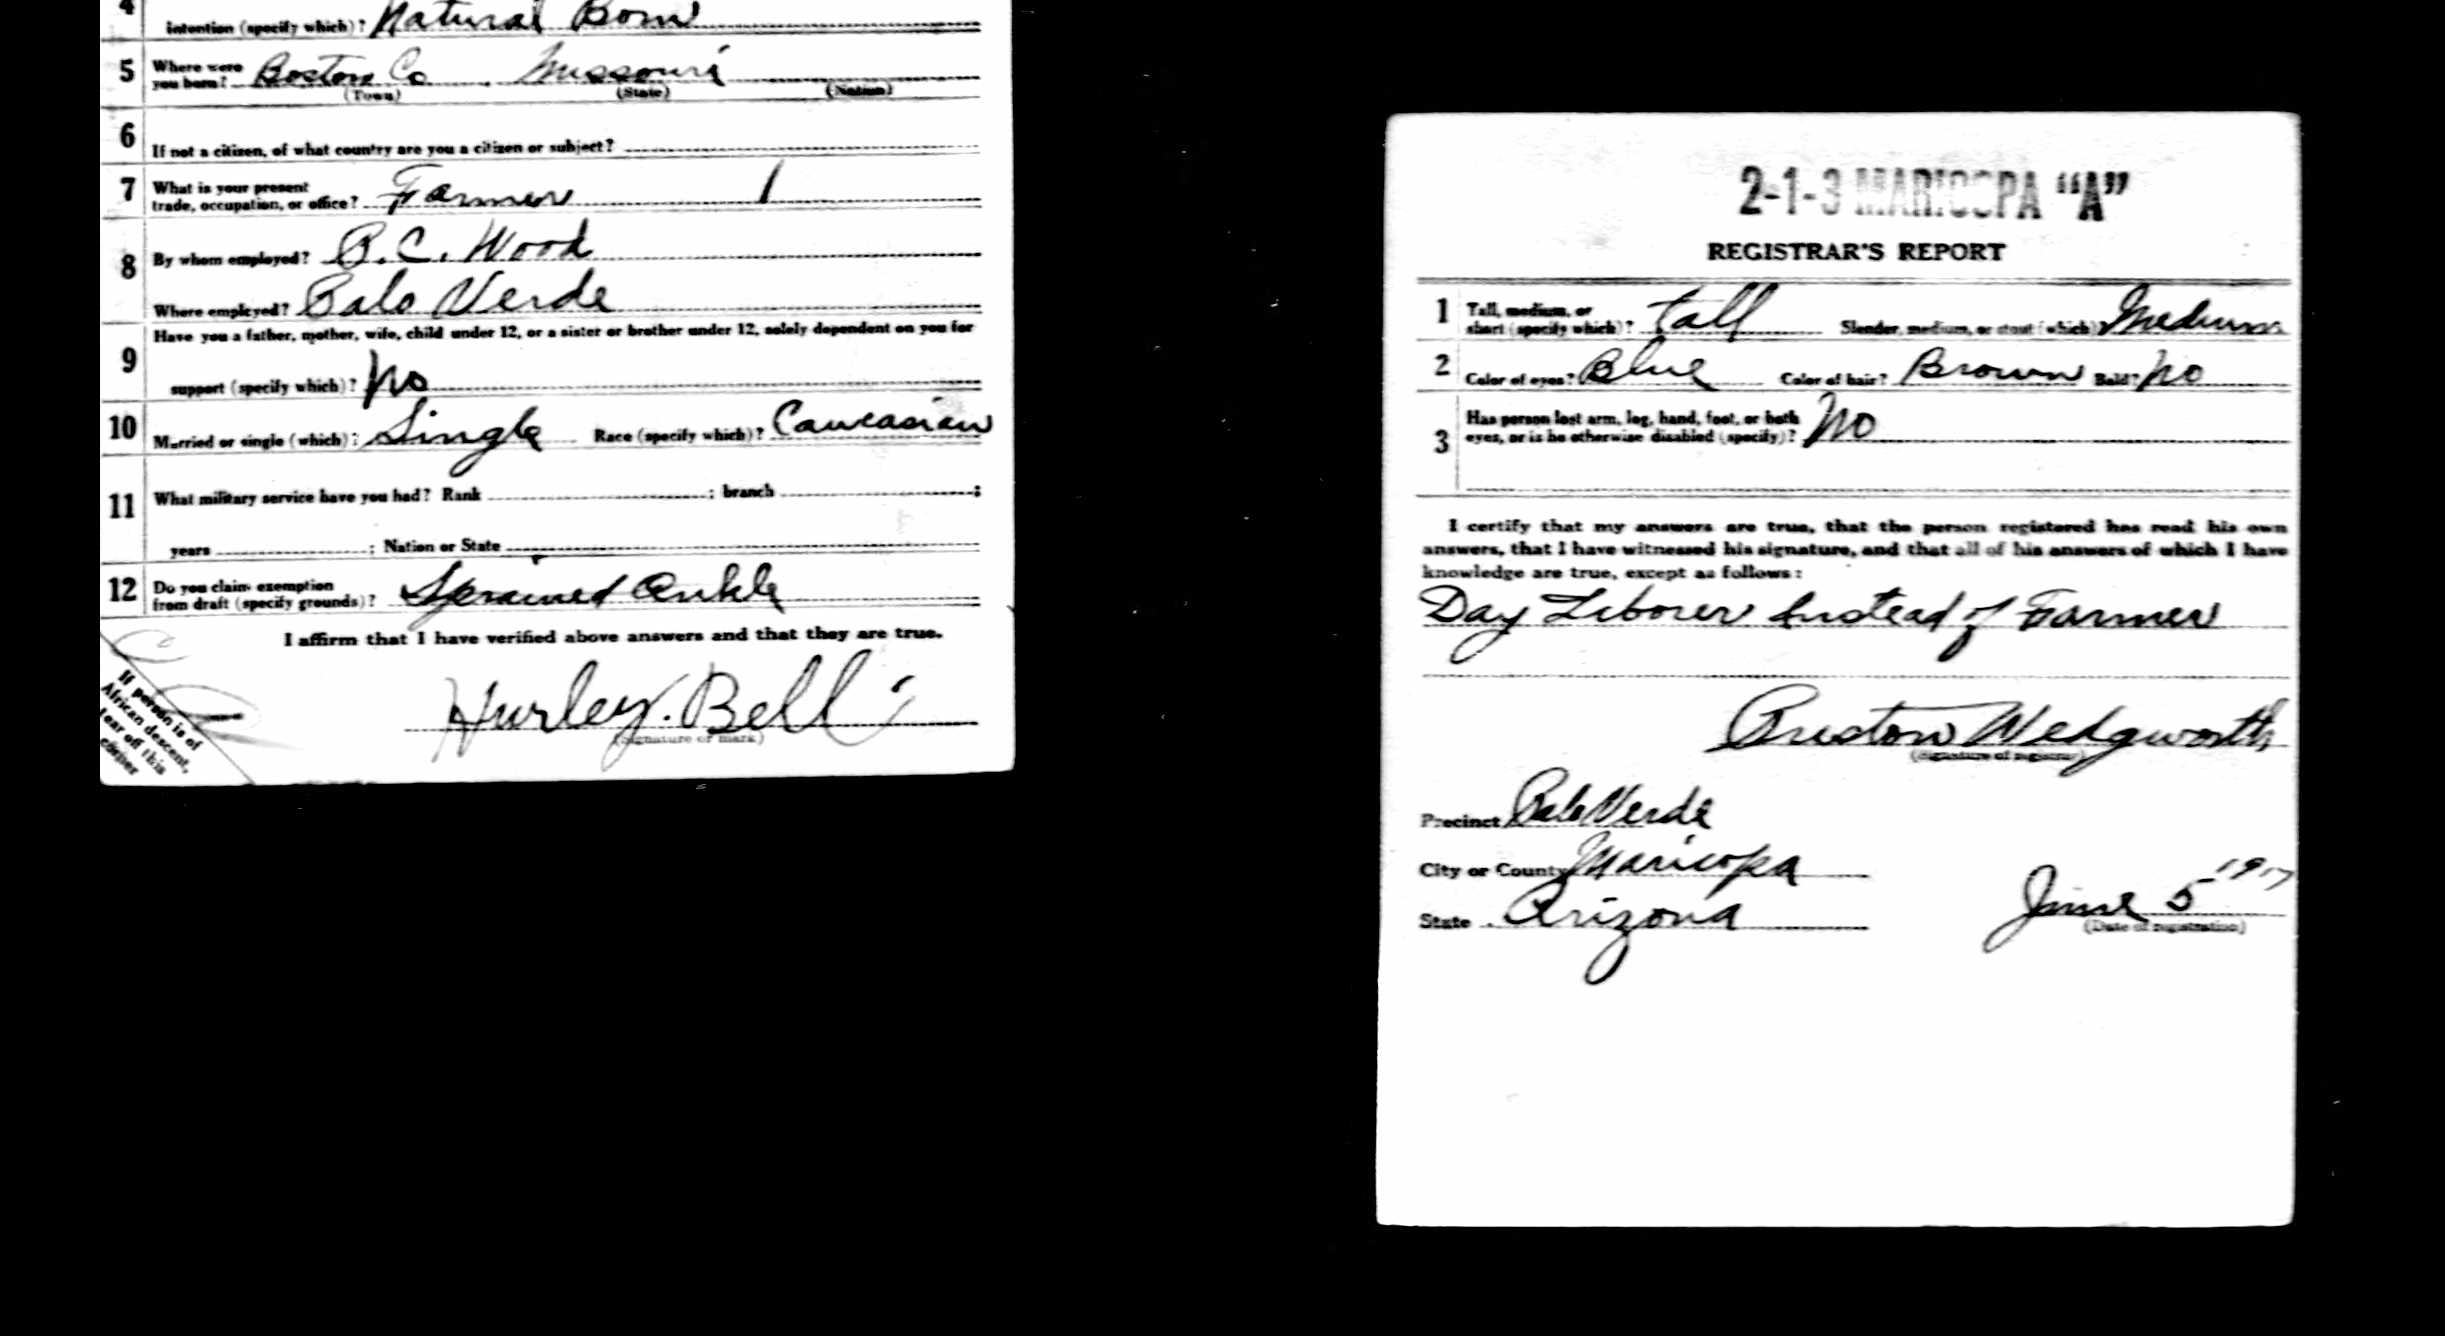 4
intention (specify which)? Natural Born
5 Where were you born? Boston Co Missouri
(Town) (State) (Nation)
6 If not a citizen, of what country are you a citizen or subject?
7 What is your present
trade, occupation, or office? Farmer 1
8 By whom employed? B.C. Wood
Where employed? Palo Verde
9 Have you a father, mother, wife, child under 12, or a sister or brother under 12, solely dependent on you for
support (specify which)? No
10 Married or single (which)? Single Race (specify which)? Caucasian
11 What military service have you had? Rank ; branch ;
years ; Nation or State
12 Do you claim exemption
from draft (specify grounds)? Sprained Ankle
I affirm that I have verified above answers and that they are true.
Hurley. Bell
(Signature or mark)
If person is of
African descent,
tear off this
corner
2-1-3 MARICOPA "A"
REGISTRAR'S REPORT
1 Tall, medium, or
short (specify which)? tall Slender, medium, or stout (which)? Medium
2 Color of eyes? Blue Color of hair? Brown Bald? No
3 Has person lost arm, leg, hand, foot, or both
eyes, or is he otherwise disabled (specify)? No
I certify that my answers are true, that the person registered has read his own
answers, that I have witnessed his signature, and that all of his answers of which I have
knowledge are true, except as follows:
Day Liborer Instead of Farmer
Preston Wedgworth
(Signature of registrar)
Precinct Palo Verde
City or County Maricopa
State Arizona June 5 1917
(Date of registration)